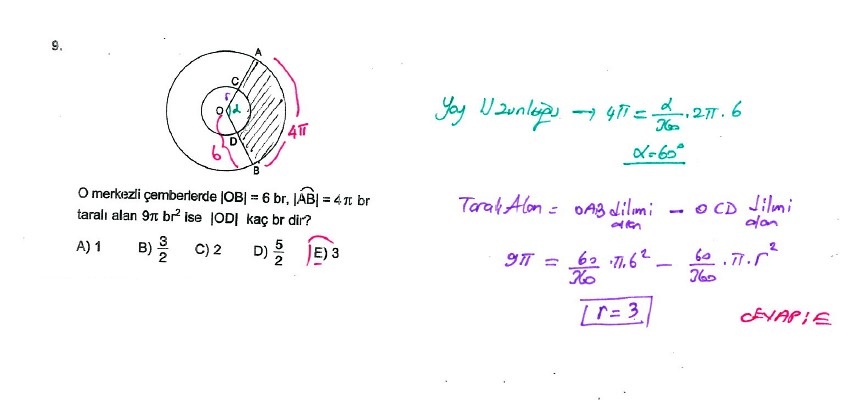 9.
A
C
r
O
α
D
4π
6
B
O merkezli çemberlerde |OB| = 6 br, |AB| = 4π br
taralı alan 9π br² ise |OD| kaç br dir?
A) 1 B) 3/2 C) 2 D) 5/2 E) 3
Yay Uzunluğu → 4π = α/360 . 2π . 6
α=60°
Taralı Alan = OAB dilimi alan − OCD dilimi alan
9π = 60/360 . π . 6² − 60/360 . π . r²
r = 3
CEVAP: E